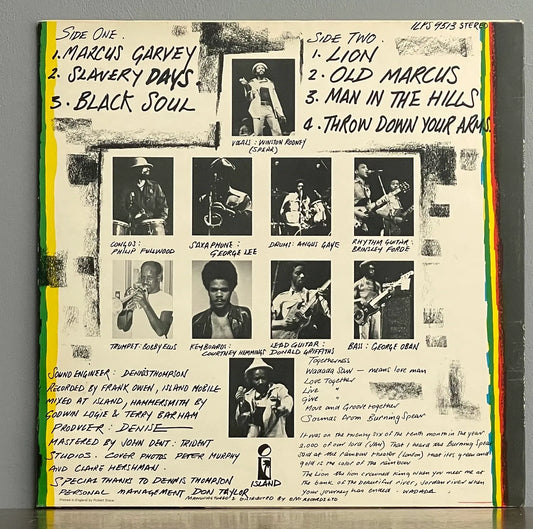 ILPS 9513 STEREO
SIDE ONE.
1. MARCUS GARVEY
2. SLAVERY DAYS
3. BLACK SOUL
SIDE TWO.
1. LION
2. OLD MARCUS
3. MAN IN THE HILLS
4. THROW DOWN YOUR ARMS
VOCALS: WINSTON RODNEY
(SPEAR)
CONGOS:
PHILIP FULLWOOD
SAXAPHONE:
GEORGE LEE
DRUMS: ANGUS GAYE
RHYTHM GUITAR:
BRINSLEY FORDE
TRUMPET: BOBBY ELLIS
KEYBOARDS:
COURTNEY HEMMINGS
LEAD GUITAR:
DONALD GRIFFITHS
BASS: GEORGE OBAN
SOUND ENGINEER: DENNIS THOMPSON
RECORDED BY FRANK OWEN, ISLAND MOBILE
MIXED AT ISLAND, HAMMERSMITH BY
GODWIN LOGIE & TERRY BARHAM
PRODUCER: DENISE
MASTERED BY JOHN DENT: TRIDENT
STUDIOS. COVER PHOTOS PETER MURPHY
AND CLAIRE HERSHMAN.
SPECIAL THANKS TO DENNIS THOMPSON
PERSONAL MANAGEMENT DON TAYLOR
Printed in England by Robert Stace
ISLAND
MANUFACTURED & DISTRIBUTED BY EMI RECORDS LTD
Togetherness
Wadada Saw - means love man
Love Together
Live "
Give "
Move and Groove together
Sounds from Burning Spear
It was on the twenty six of the tenth month in the year
2.000 of our lord (JAH) That I need the Burning Spear
Said at the rainbow theater (London) that red green and
gold is the color of the rainbow
The Lion the lion crowned King when you meet me at
the bank of the beautiful river, Jordan river when
your journey has ended. WADADA.